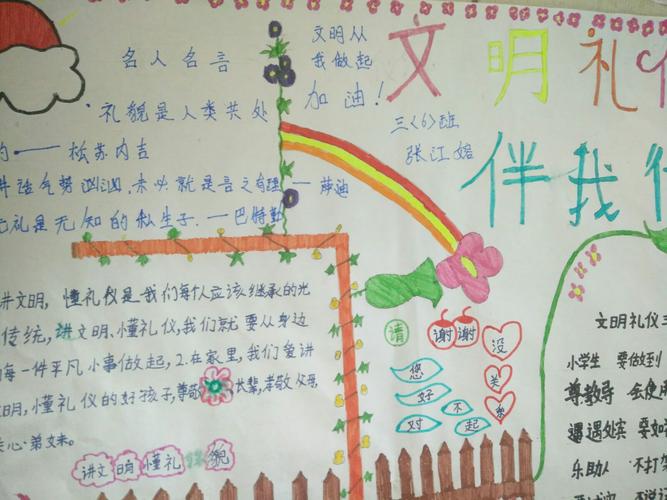 文明礼仪
伴我行
名人名言
礼貌是人类共处
的——松苏内吉
讲话气势汹汹,未必就是言之有理——萨迪
无礼是无知的私生子.——巴特勒
文明从
我做起
加油!
三〈6〉班
张江婼
讲文明,懂礼仪是我们每个人应该继承的光
传统,讲文明、懂礼仪,我们就要从身边
每一件平凡小事做起,2.在家里,我们要讲
文明,懂礼仪的好孩子,尊敬长辈,孝敬父母
关心弟妹.
讲文明懂礼貌
请
谢谢
没关系
您好
对不起
文明礼仪三
小学生 要做到
尊教导 会使用
遇宾 要如
乐助人 不打
不说